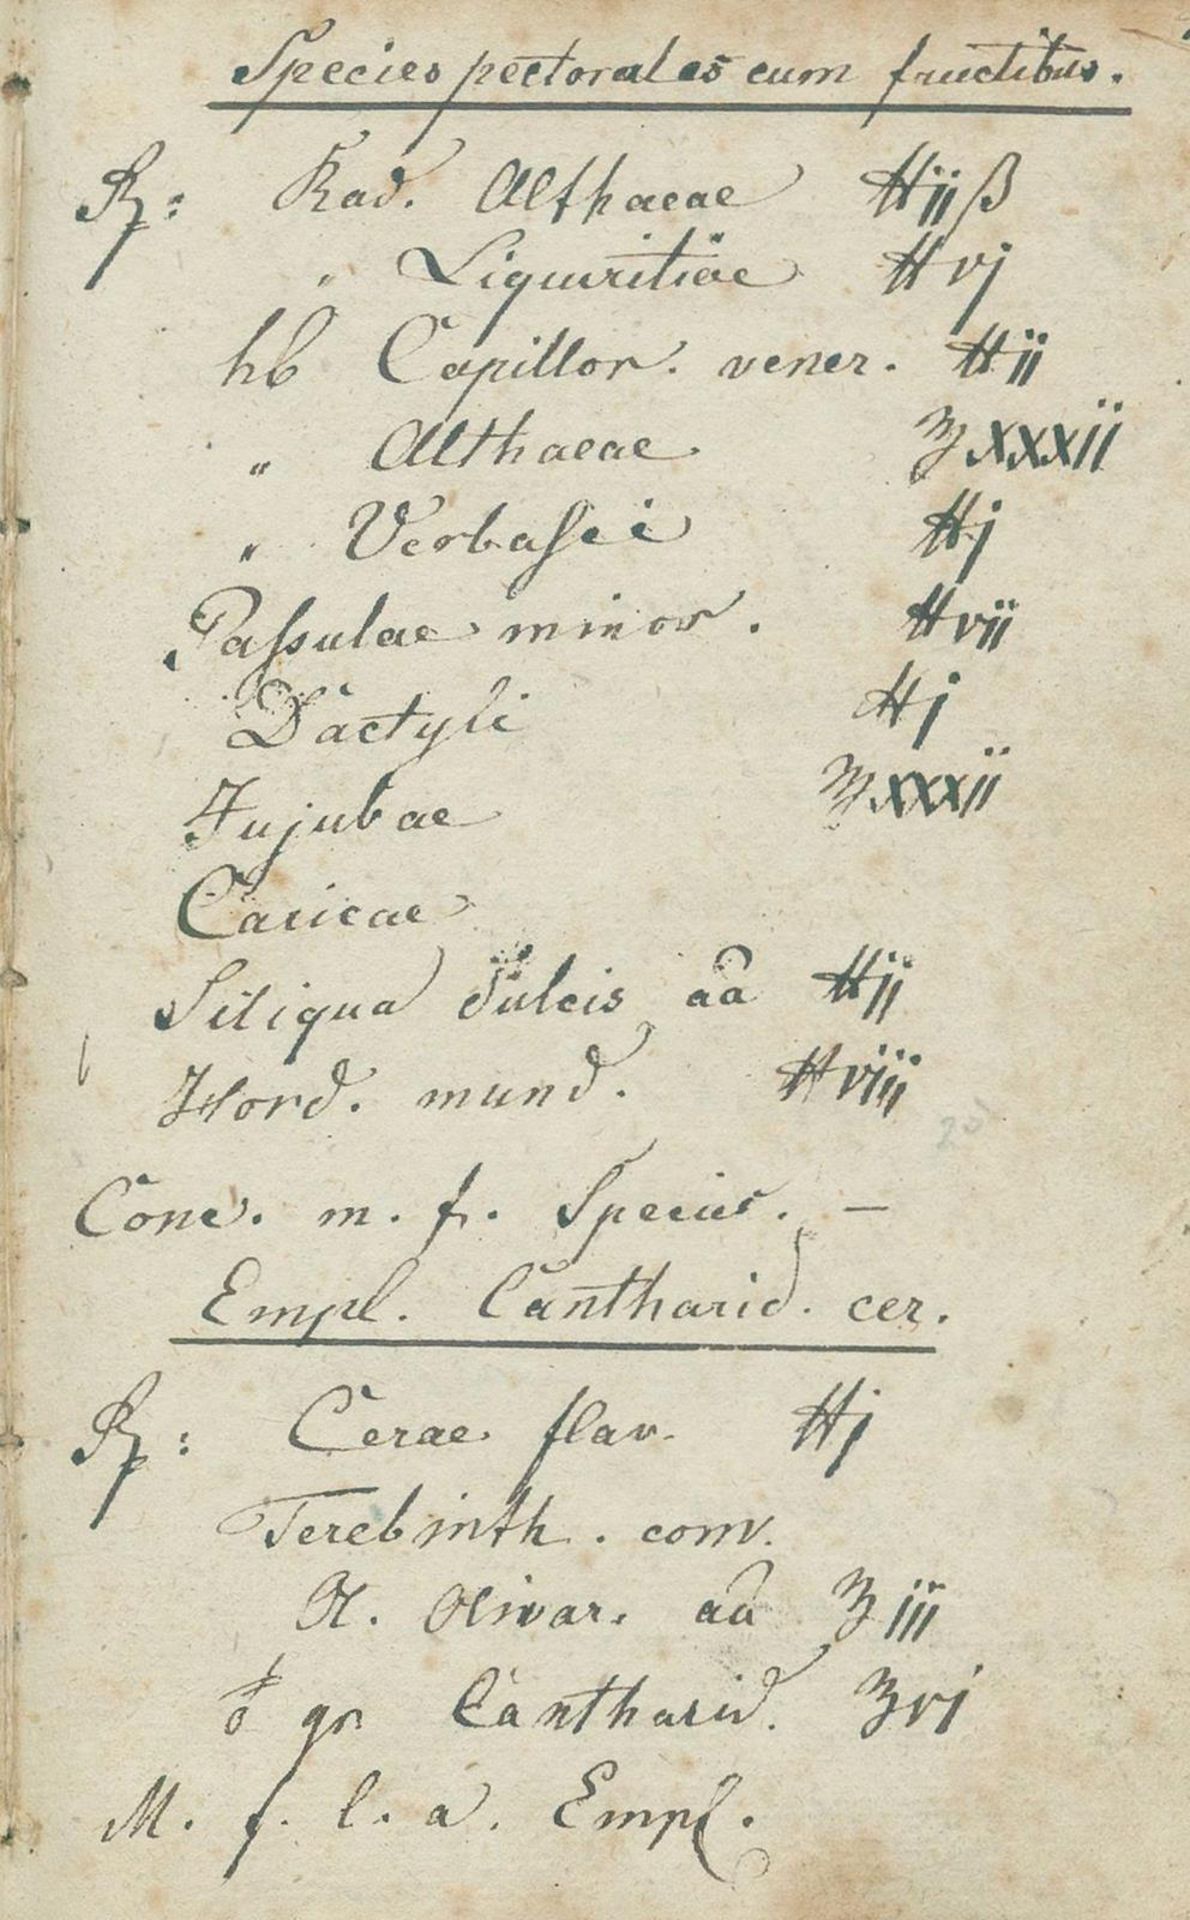 Species pectorales cum fructibus.
℞: Rad. Althaeae ℔ijß
" Liquiritiae ℔vj
hb Capillor. vener. ℔ij
" Althaeae ℥xxxij
" Verbasci ℔j
Passulae minor. ℔vij
Dactyli ℔j
Jujubae ℥xxxij
Caricae
Siliqua dulcis aa ℔ij
Hord. mund. ℔viij
Conc. m. f. Species. —
Empl. Cantharid. cer.
℞: Cerae flav. ℔j
Terebinth. com.
Ol. Olivar. aa ℥iij
gr Cantharid. ℥vj
M. f. l. a. Empl.